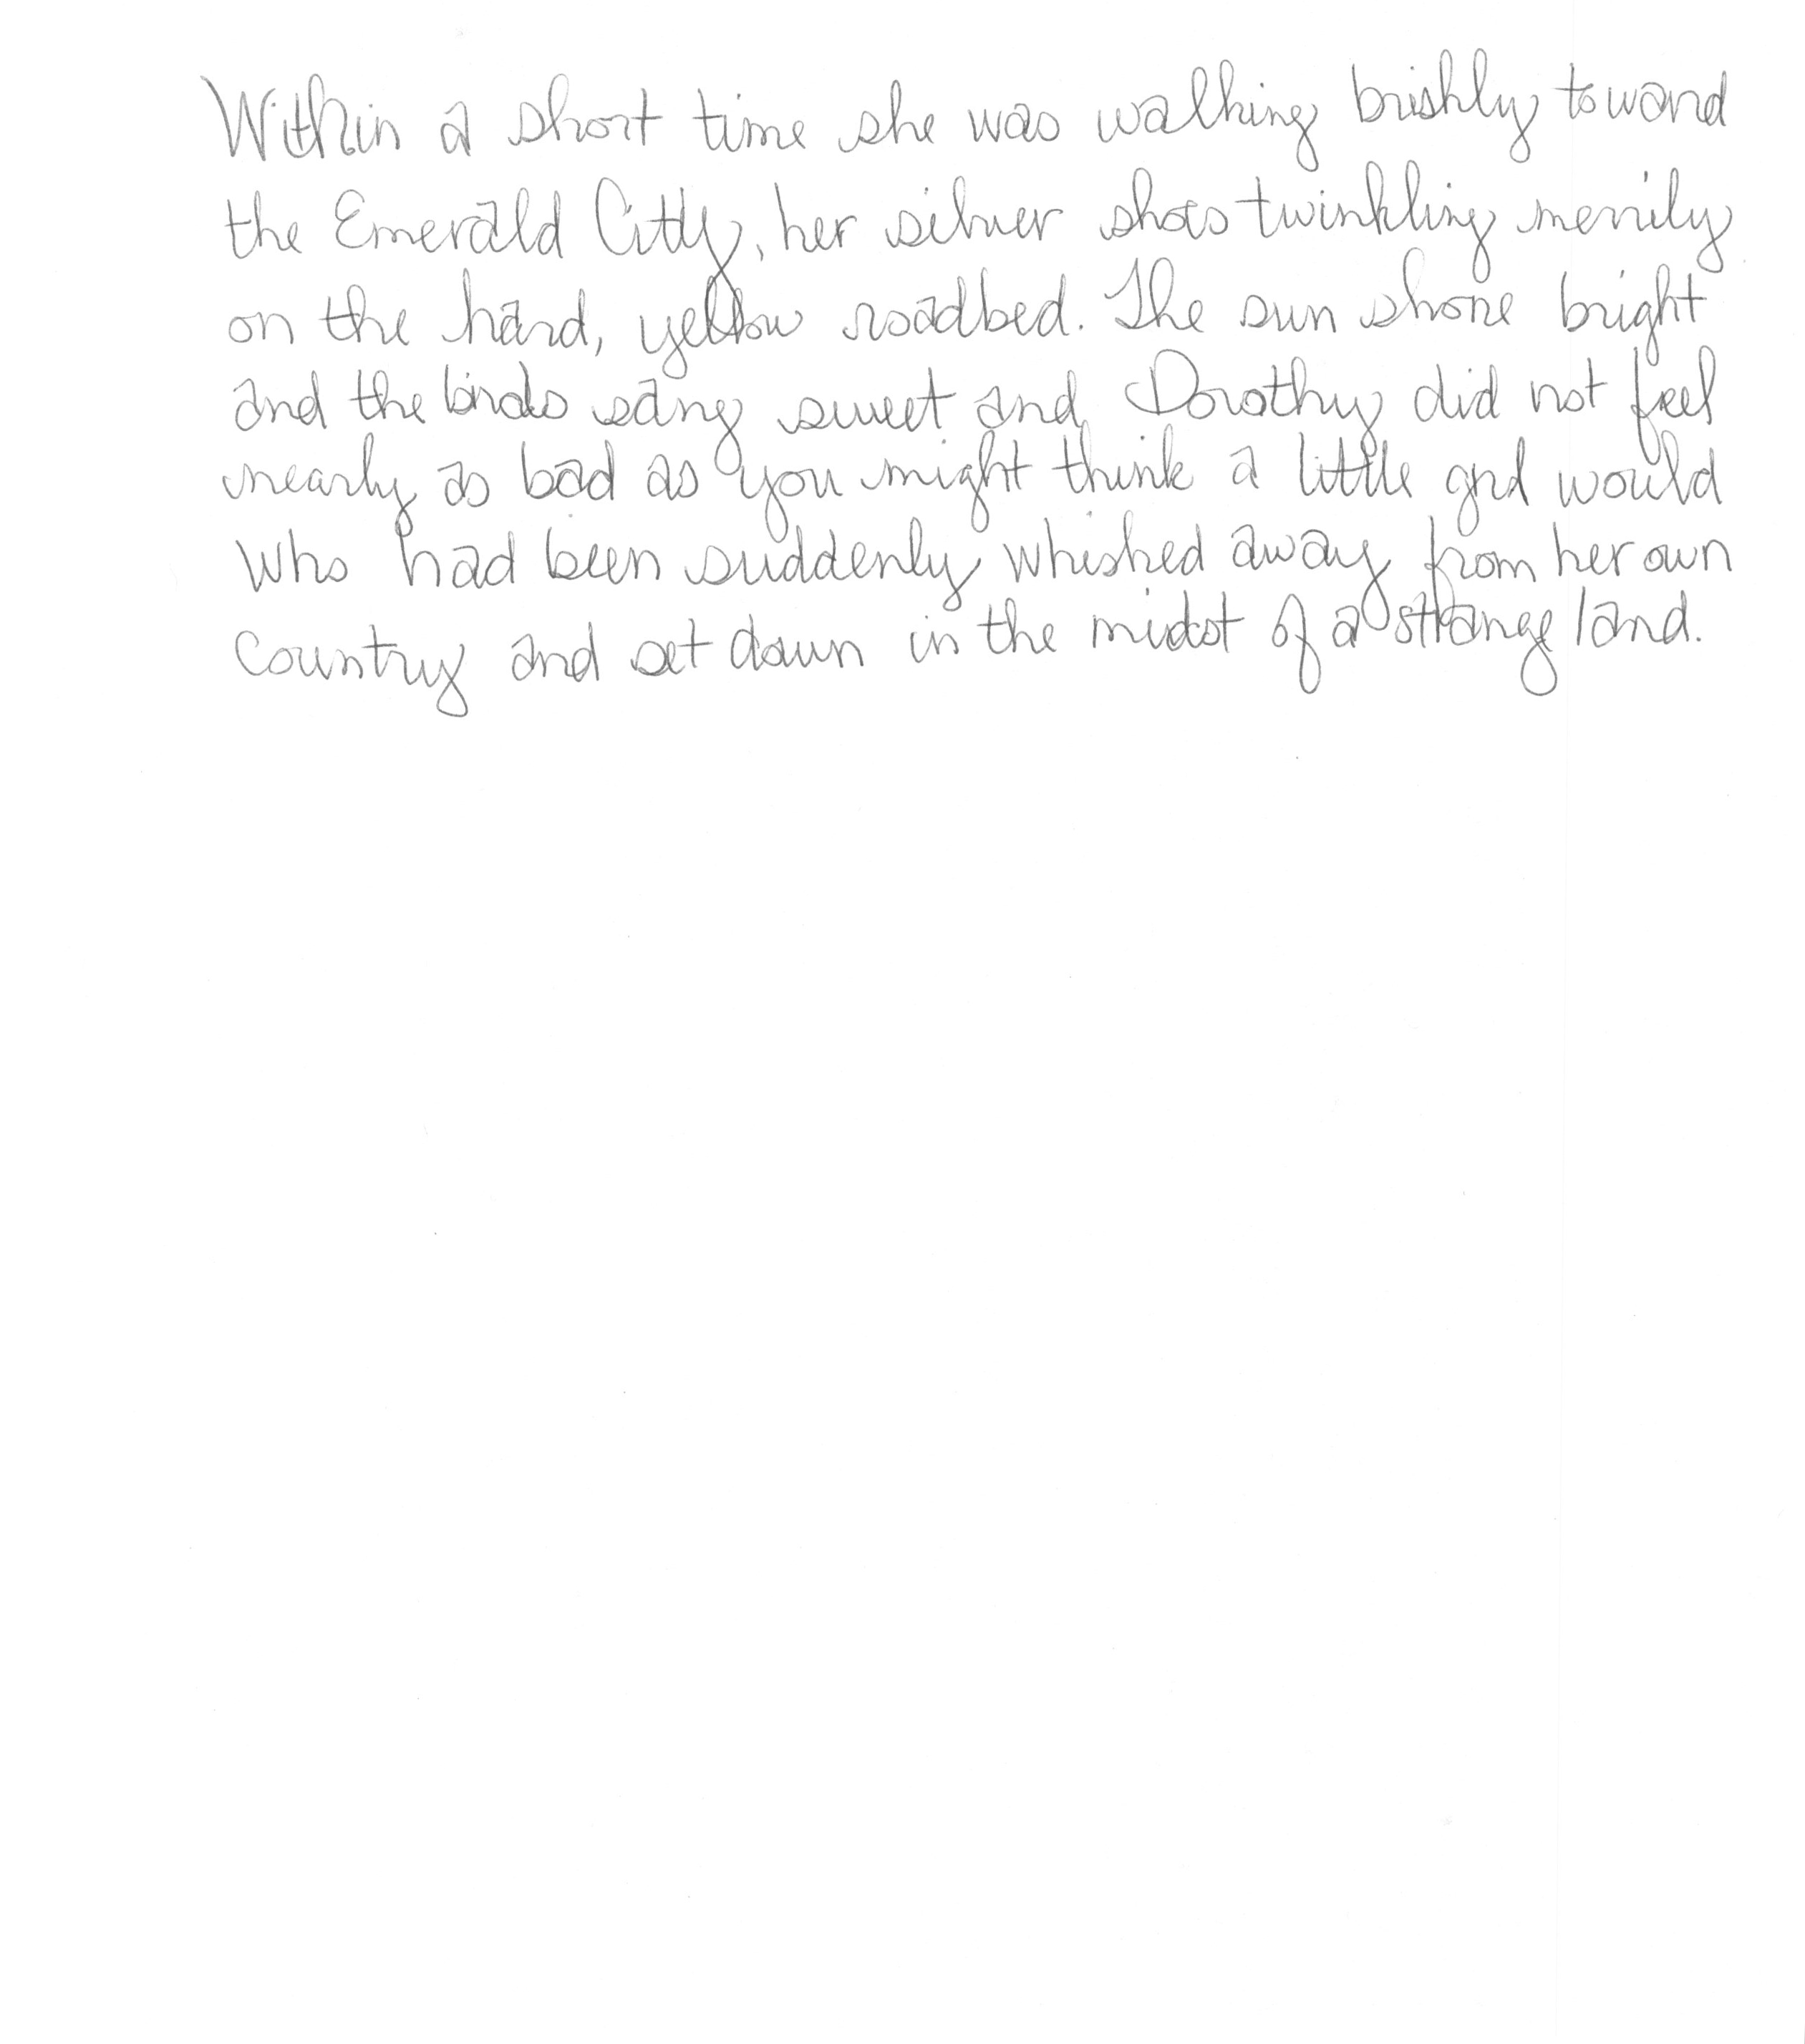 Within a short time she was walking briskly toward
the Emerald City, her silver shoes twinkling merrily
on the hard, yellow roadbed. The sun shone bright
and the birds sang sweet and Dorothy did not feel
nearly as bad as you might think a little girl would
who had been suddenly whisked away from her own
country and set down in the midst of a strange land.